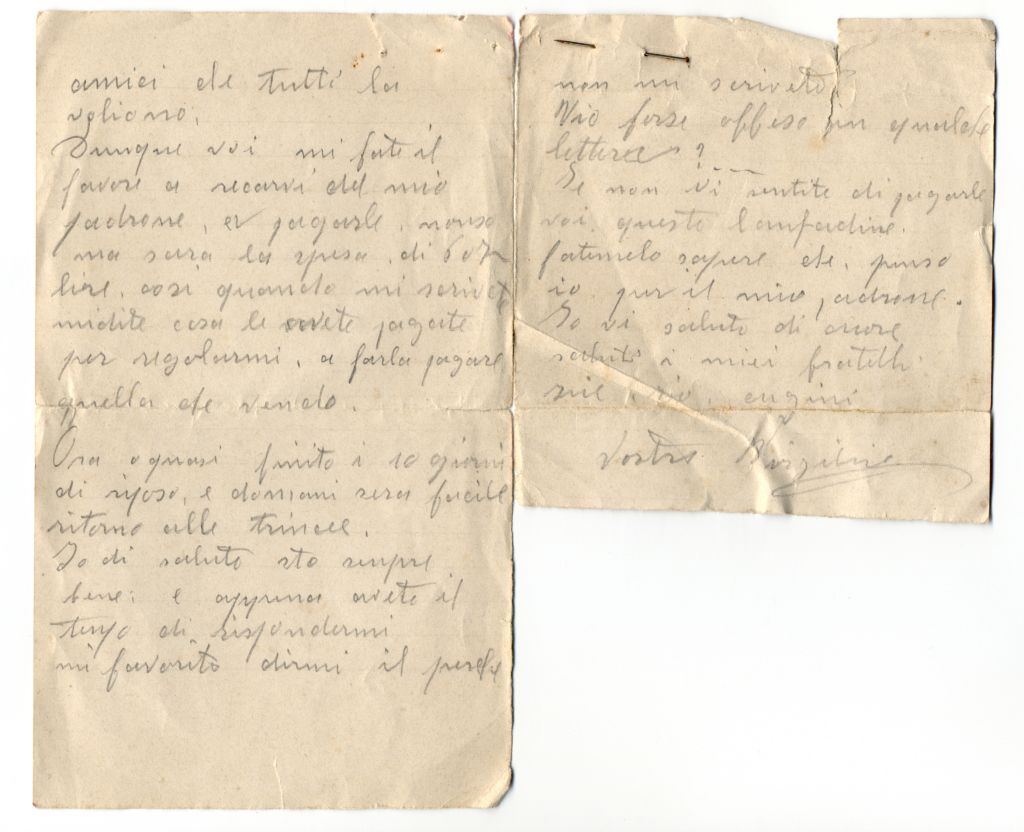 amici che tutti la
vogliono.
Dunque voi mi fate il
favore a recarvi dal mio
padrone, e pagarle, nonso
ma sara la spesa di 6 o 7
lire, così quando mi scrivete
midite cosa le avete pagate
per regolarmi, a farla pagare
quella che vendo.
Ora o quasi finito i 10 giorni
di riposo, e domani sera facile
ritorno alle trincee.
Io di salute sto sempre
bene: e appena avete il
tempo di rispondermi
mi favorite dirmi il perche
non mi scrivete?
Vio forse offeso in qualche
lettera ?
Se non vi sentite di pagarle
voi, queste lampadine.
fatemelo sapere che, penso
io per il mio padrone.
Io vi saluto di cuore
saluti i miei fratelli
zie, zio, cugini
Vostro Virgilio